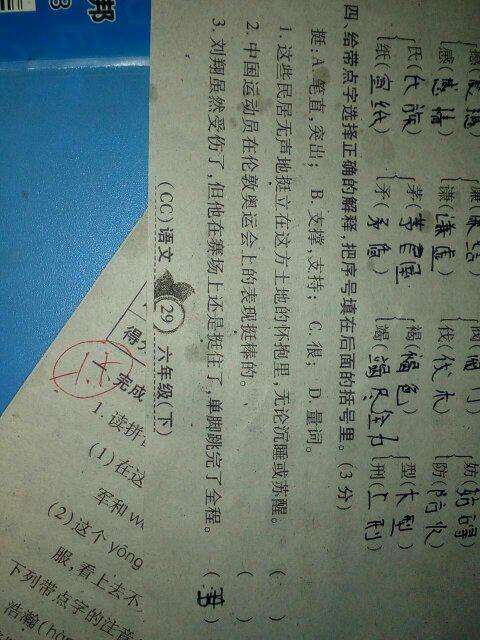 感(感情)
氏(氏族) 茅(茅 竭(竭尽全力 型(大型)
纸(宣纸) 矛(矛盾) 刑(上刑)
谦(谦虚) 伐(伐木) 防(防火)
褐(褐色)
四、给带点字选择正确的解释,把序号填在后面的括号里。(3分)
挺:A.笔直,突出; B.支撑,支持; C.很; D.量词。
1.这些民居无声地挺立在这方土地的怀抱里,无论沉睡或苏醒。 ( )
2.中国运动员在伦敦奥运会上的表现挺棒的。 ( )
3.刘翔虽然受伤了,但他在赛场上还是挺住了,单脚跳完了全程。 ( )
(CC)语文 29 六年级(下)
得分
完成
1.读拼
(1)在这
军和w
(2)这个yōng
服,看上去不
下列带点字的注音
浩瀚(hɑn
邦